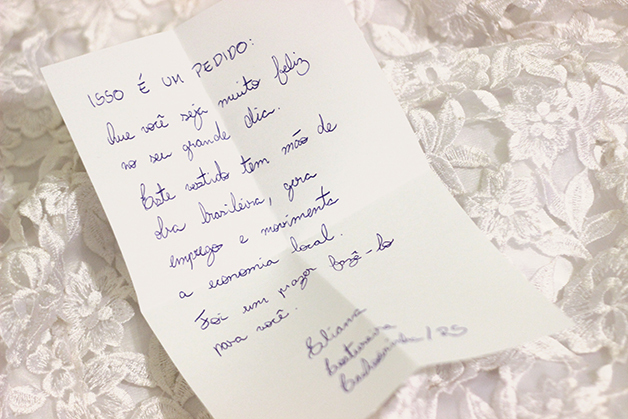 ISSO É UM PEDIDO:
Que você seja muito feliz
no seu grande dia.
Este vestido tem mão de
obra brasileira, gera
emprego e movimenta
a economia local.
Foi um prazer fazê-lo
para você.
Eliana
Costureira
Cachoeirinha/RS